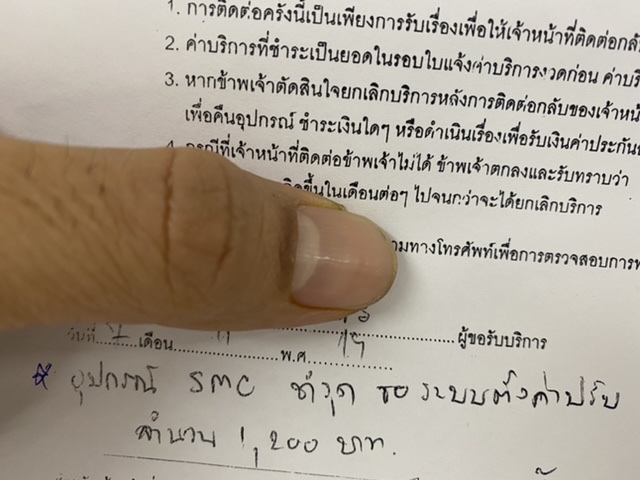 1. การติดต่อครั้งนี้เป็นเพียงการรับเรื่องเพื่อให้เจ้าหน้าที่ติดต่อกลับ
2. ค่าบริการที่ชำระเป็นยอดในรอบใบแจ้งค่าบริการงวดก่อน
3. หากข้าพเจ้าตัดสินใจยกเลิกบริการหลังการติดต่อกลับของเจ้าหน้า
เพื่อคืนอุปกรณ์ ชำระเงินใดๆ หรือดำเนินเรื่องเพื่อรับเงินค่าประกัน
4. กรณีที่เจ้าหน้าที่ติดต่อข้าพเจ้าไม่ได้ ข้าพเจ้าตกลงและรับทราบว่า
ขึ้นในเดือนต่อๆ ไปจนกว่าจะได้ยกเลิกบริการ
ทางโทรศัพท์เพื่อการตรวจสอบการ
ผู้ขอรับบริการ
วันที่ เดือน พ.ศ
* อุปกรณ์ SMC ชำรุด ขอ ระบบตั้งค่าปรับ
จำนวน 1,200 บาท.